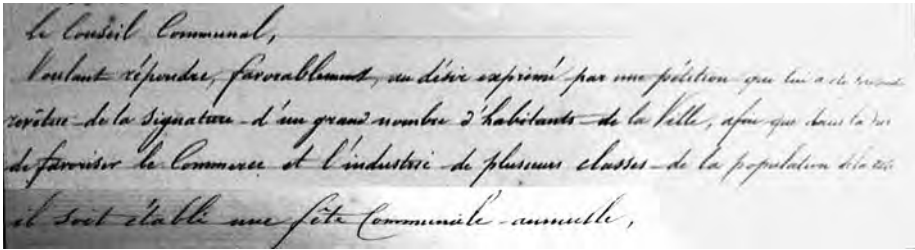 Le Conseil Communal,
Voulant répondre, favorablement, au désir exprimé par une pétition que lui a été
revêtue de la signature d'un grand nombre d'habitants de la Ville, afin que dans la vue
de favoriser le Commerce et l'industrie de plusieurs classes de la population de la
il soit établi une fête Communale annuelle,